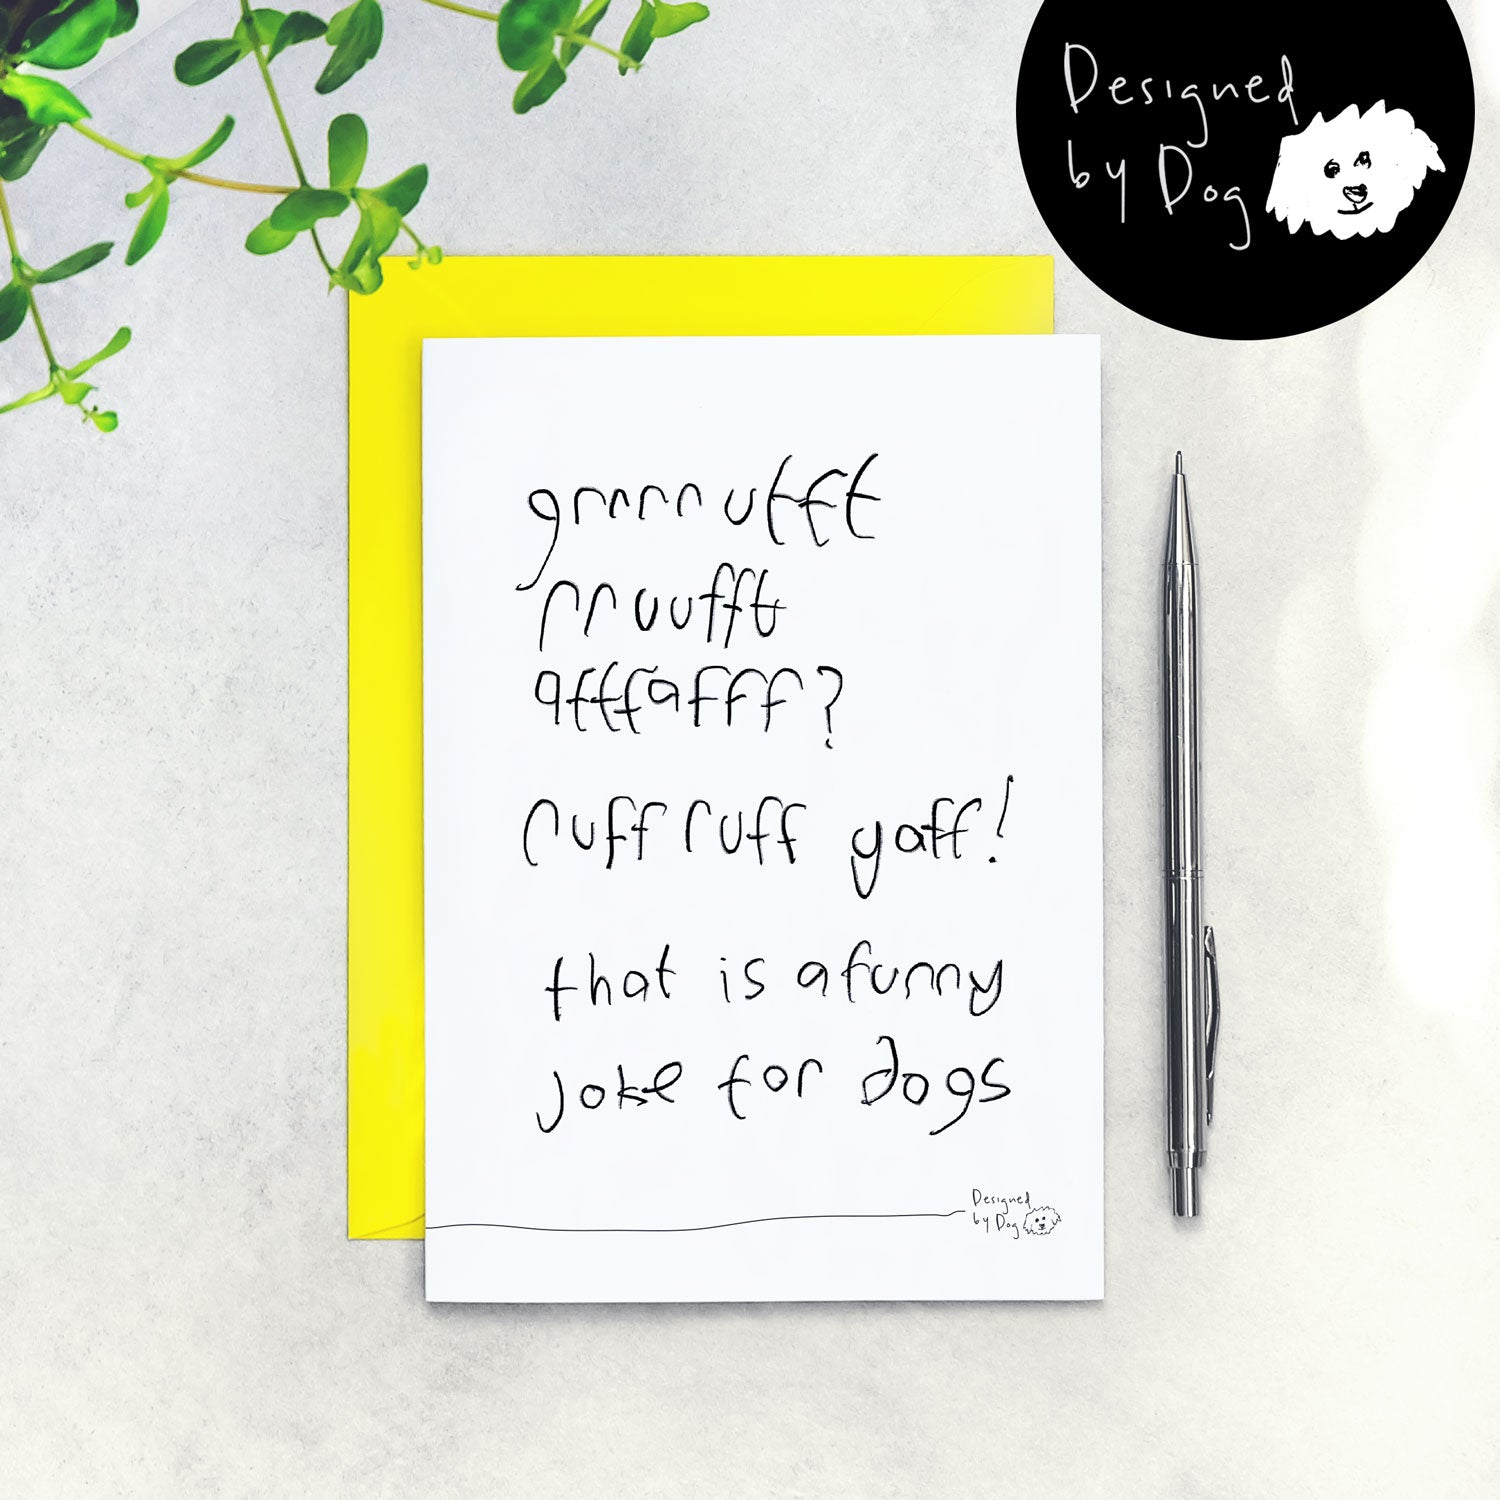 Designed
by Dog
grrrrr ufft
rruufft
afffafff?
ruff ruff yaff!
that is a funny
joke for dogs
Designed
by Dog